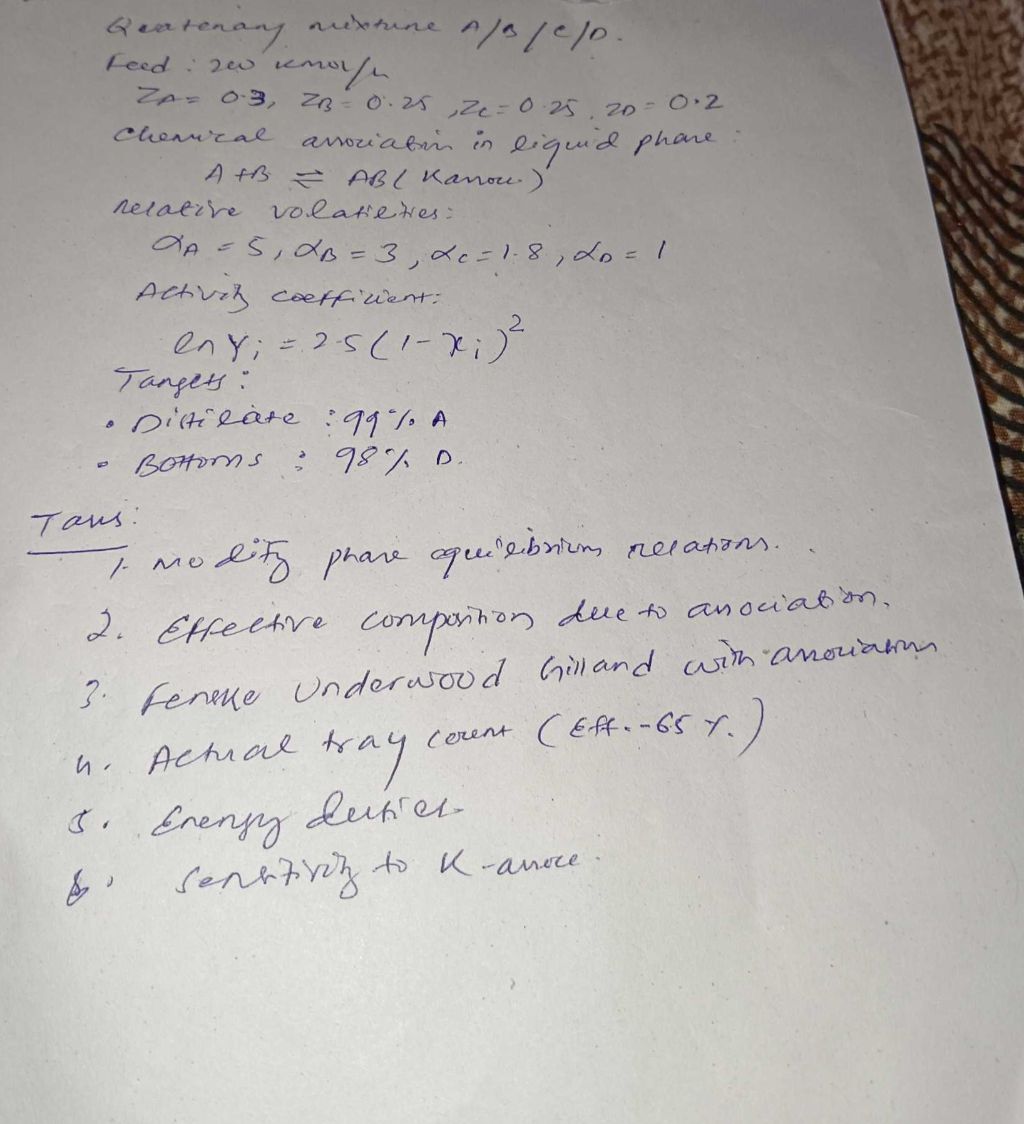 Quatenany mixtune A/B/C/D.
Feed : 200 kmol/h
ZA = 0.3, ZB = 0.25, ZC = 0.25, ZD = 0.2
Chemical association in liquid phase :
A + B ⇌ AB ( Kassoc )
Relative volatilities :
αA = 5, αB = 3, αC = 1.8, αD = 1
Activity coefficient :
ln γi = 2.5 (1 - xi)²
Targets :
• Distillate : 99% A
• Bottoms : 98% D.
Tasks :
1. Modify phase equilibrium relations.
2. Effective composition due to association.
3. Fenske Underwood Gilland with association
4. Actual tray count (Eff. - 65 %.)
5. Energy duties
6. Sensitivity to K-assoc.